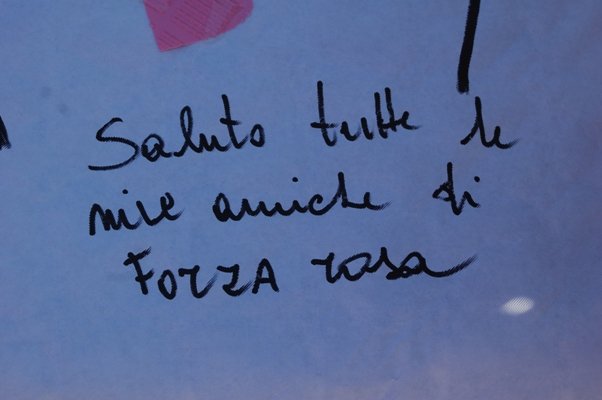 Saluto tutte le
mie amiche di
FORZA rosa